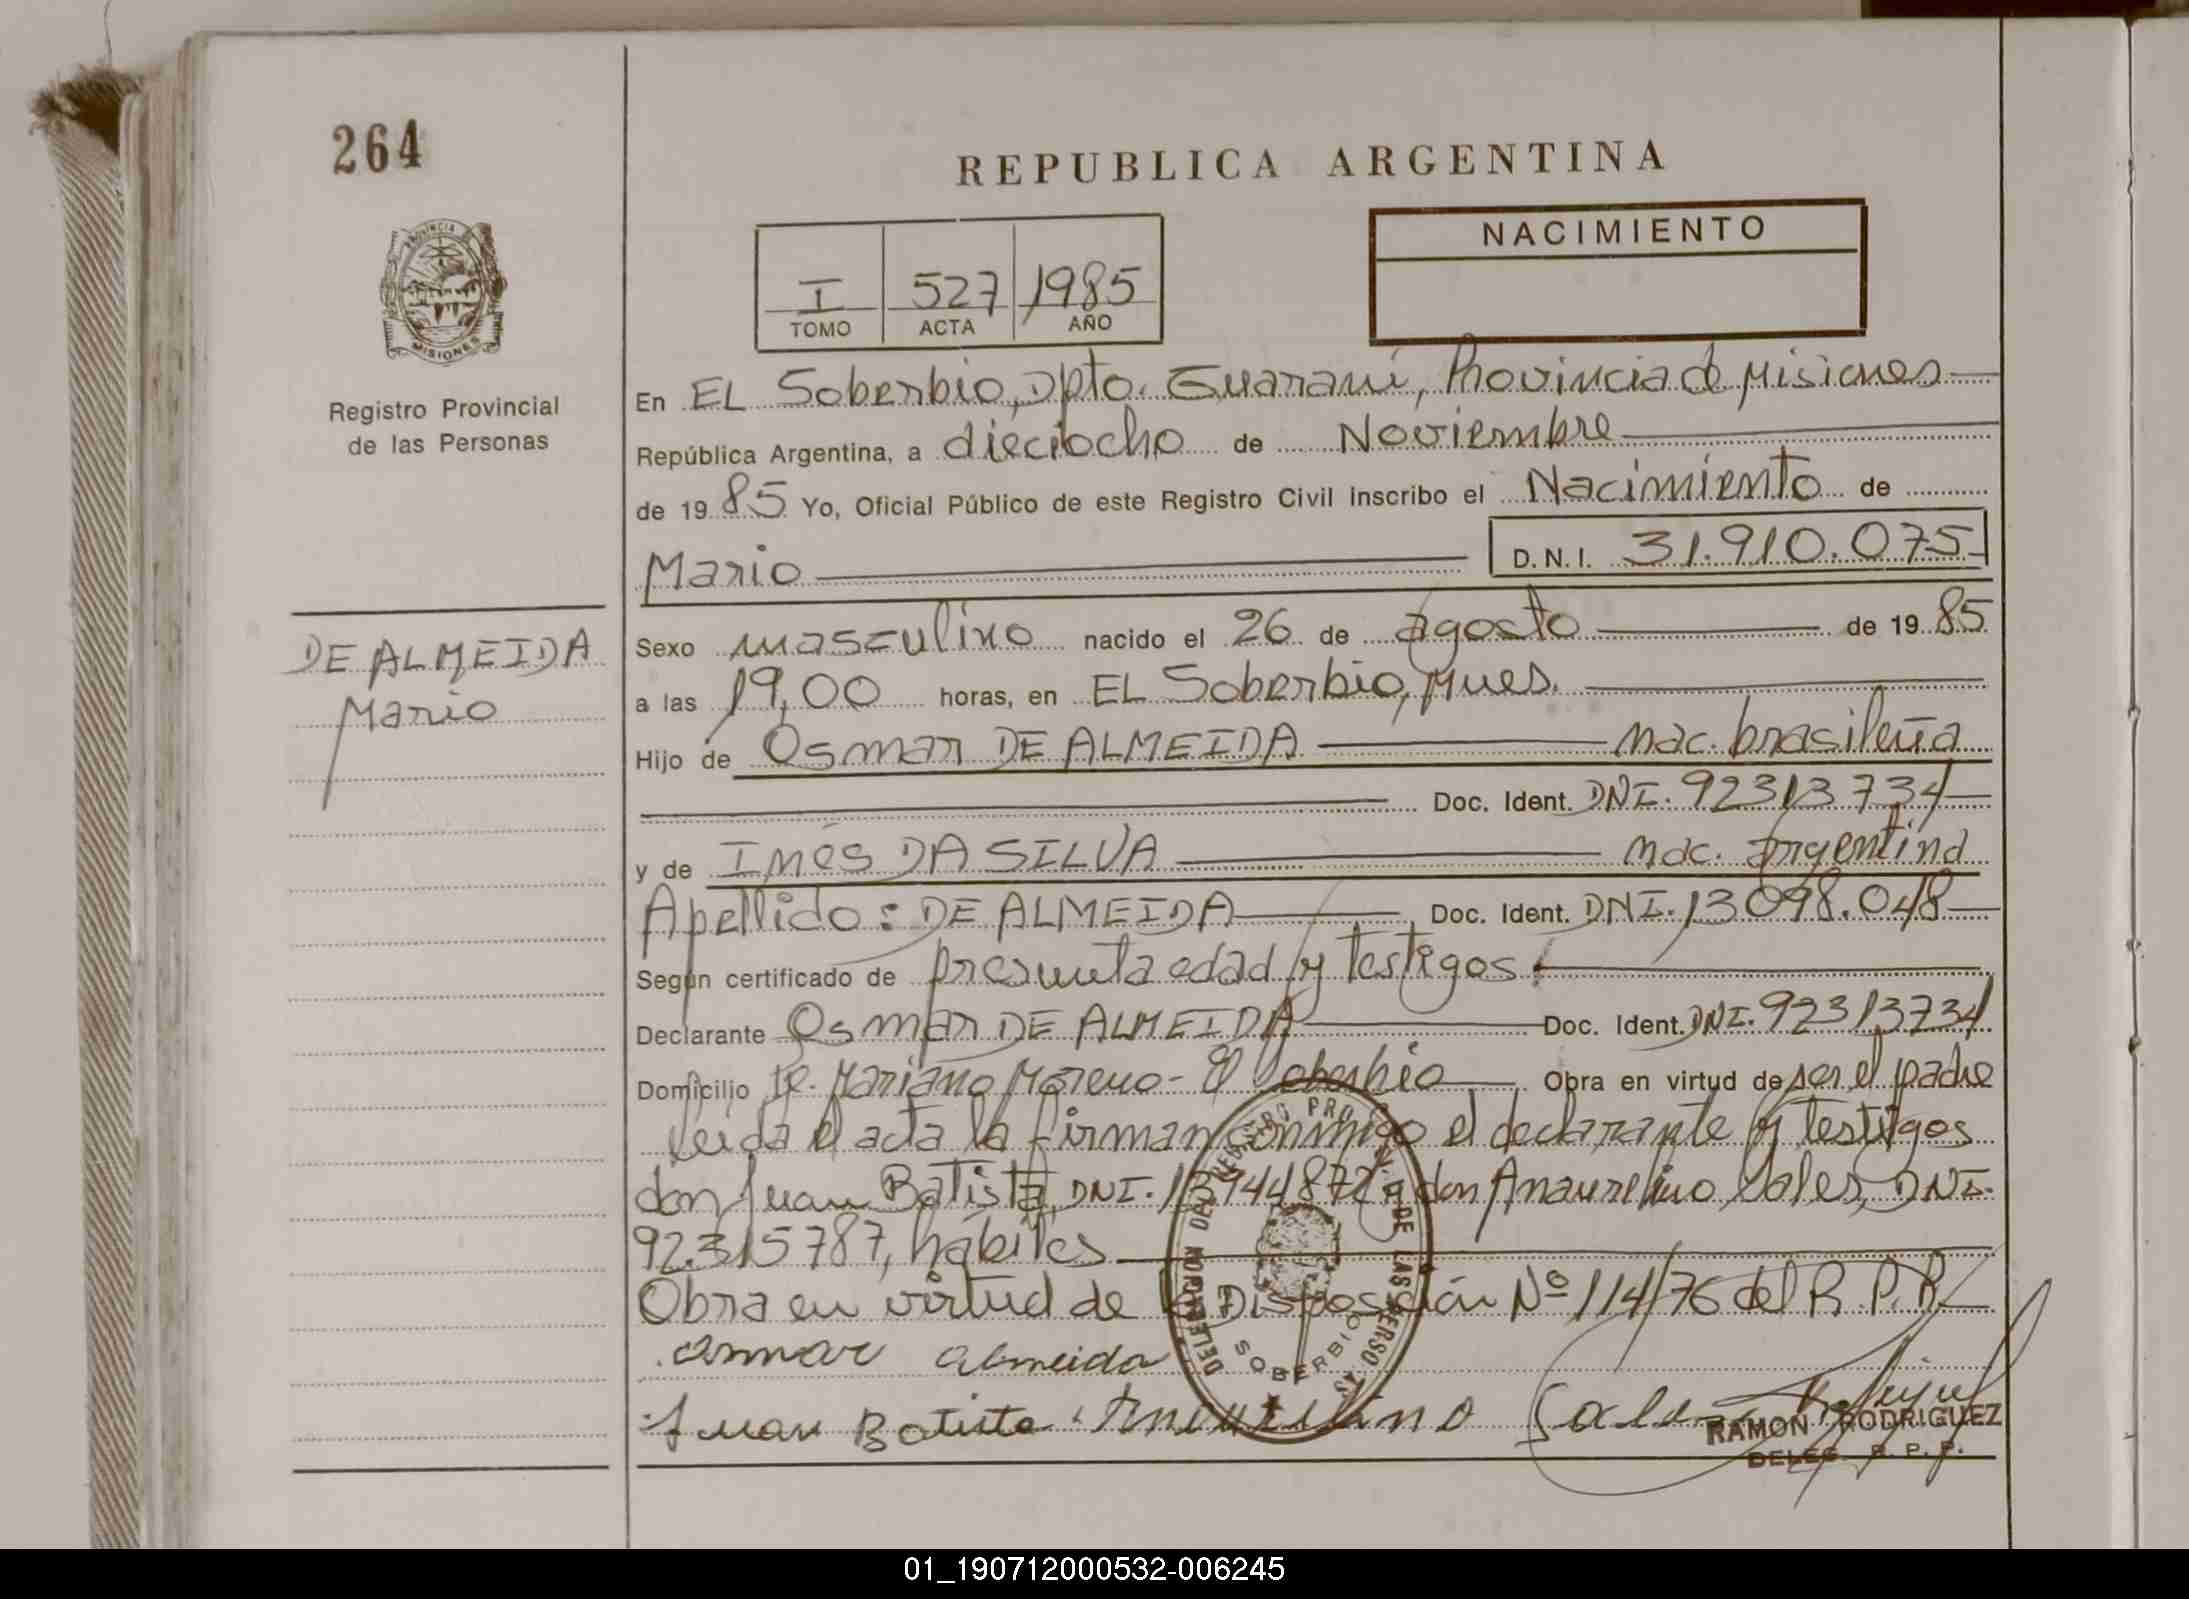 264
REPUBLICA ARGENTINA
NACIMIENTO
I 527 1985
TOMO ACTA AÑO
PROVINCIA DE
MISIONES
Registro Provincial
de las Personas
DE ALMEIDA
Mario
En EL Soberbio, Dpto. Guaraní, Provincia de Misiones
República Argentina, a dieciocho de Noviembre
de 1985 Yo, Oficial Público de este Registro Civil inscribo el Nacimiento de
Mario D.N.I. 31.910.075
Sexo masculino nacido el 26 de agosto de 1985
a las 19,00 horas, en EL Soberbio, Mnes.
Hijo de Osmar DE ALMEIDA nac. brasileña
Doc. Ident. DNI. 92313734
y de Inés DA SILVA nac. argentina
Apellido: DE ALMEIDA Doc. Ident. DNI. 13098.048
Según certificado de presunta edad y testigos.
Declarante Osmar DE ALMEIDA Doc. Ident. DNI. 92313734
Domicilio Mariano Moreno - El Soberbio Obra en virtud de ser el padre
leída el acta la firman conmigo el declarante y testigos
don Juan Batista, DNI. 13944872 y don Anaurelino Sales, DNI.
92.315787, hábiles
Obra en virtud de la Disposición Nº 114/76 del R. P. P.
osmar almeida
Juan Batista Sales
RAMON RODRIGUEZ
DELEG. R. P. P.
SOBERBIO
01_190712000532-006245